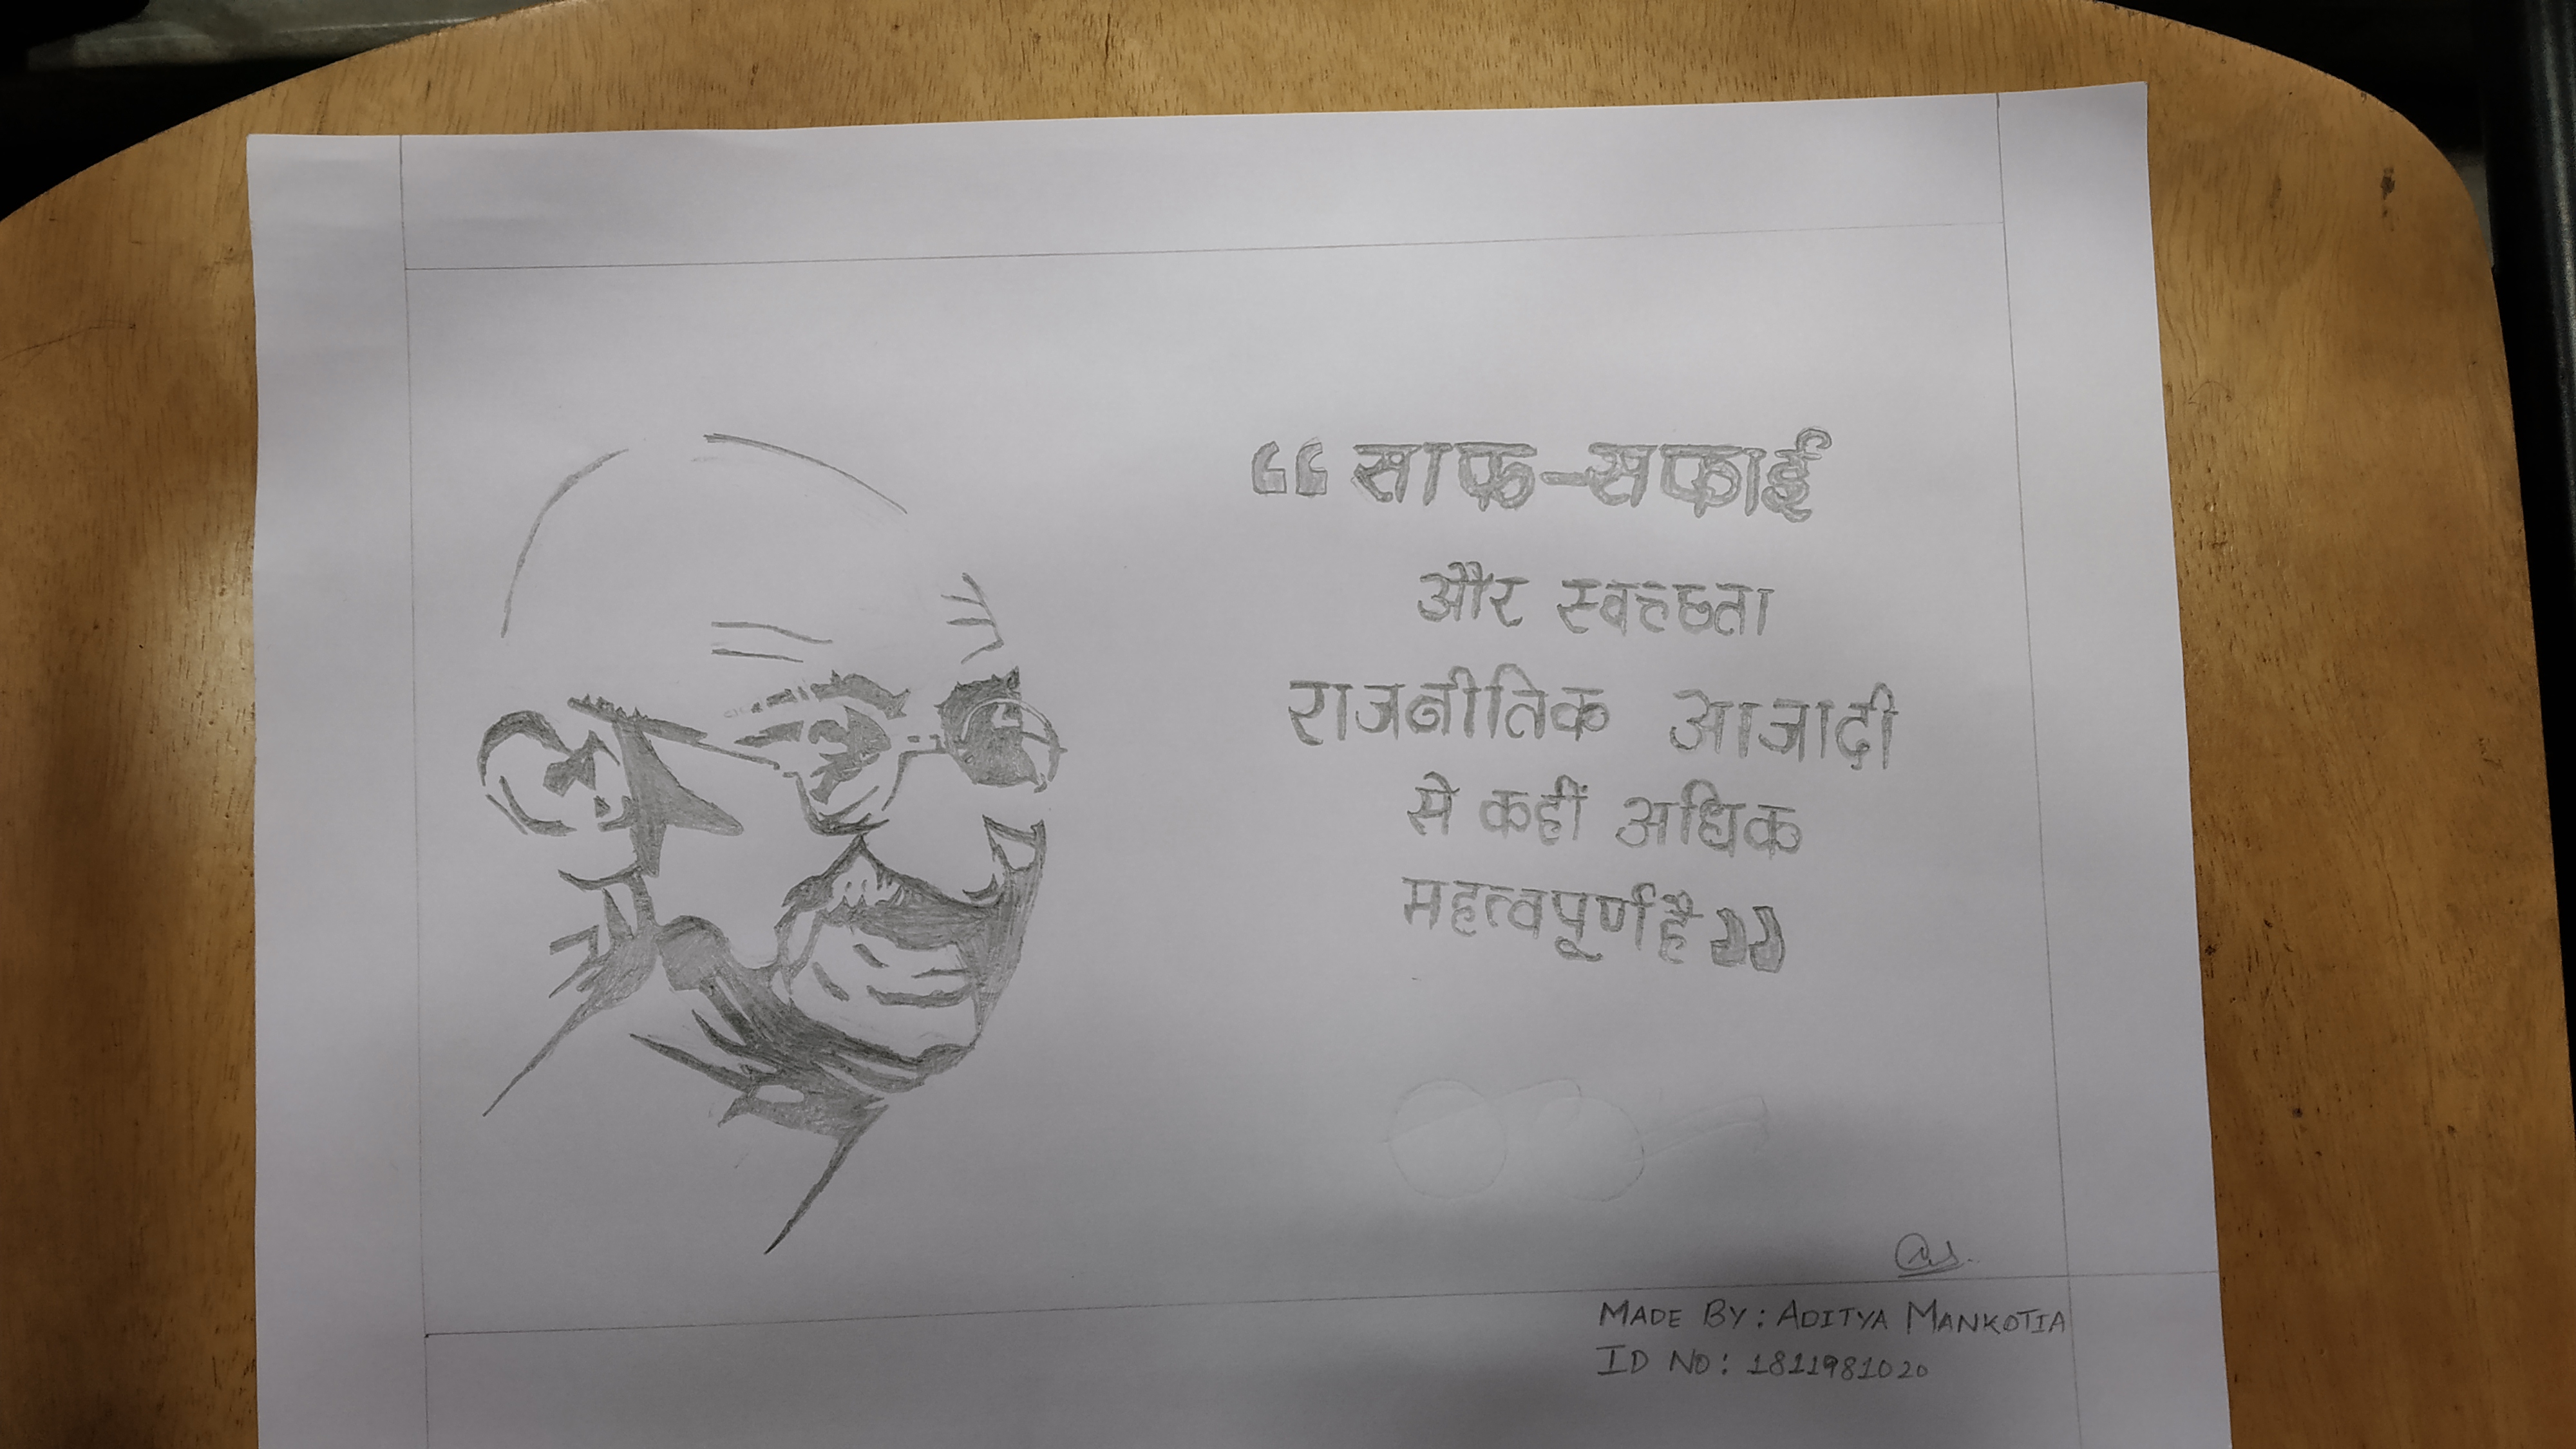 “साफ-सफाई
और स्वच्छता
राजनीतिक आजादी
से कहीं अधिक
महत्वपूर्ण है”
MADE BY: ADITYA MANKOTIA
ID NO: 1811981020